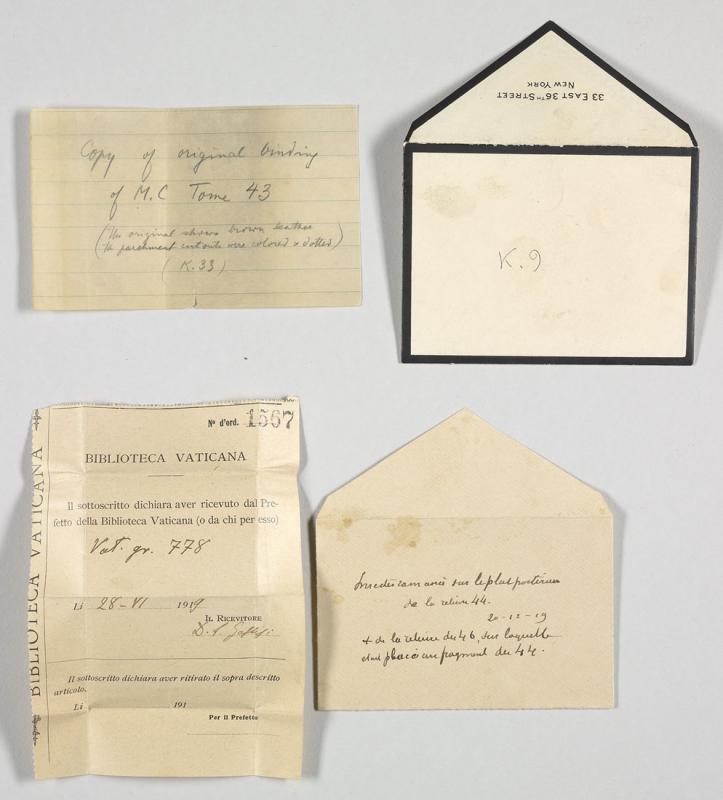 Copy of original binding
of M.C Tome 43
(the original shows brown leather
the parchment cutouts were colored & dotted)
(K.33)
33 EAST 36TH STREET
NEW YORK
K.9
BIBLIOTECA VATICANA
Nº d'ord. 1567
BIBLIOTECA VATICANA
Il sottoscritto dichiara aver ricevuto dal Pre-
fetto della Biblioteca Vaticana (o da chi per esso)
Vat. gr. 778
Li 28-VI 1919
IL RICEVITORE
D. S.
Il sottoscritto dichiara aver ritirato il sopra descritto
articolo.
Li 191
Per il Prefetto
sur le plat postérieur
de la reliure 44.
20-12-19
+ de la reliure du 46, sur laquelle
était placé un fragment du 44.